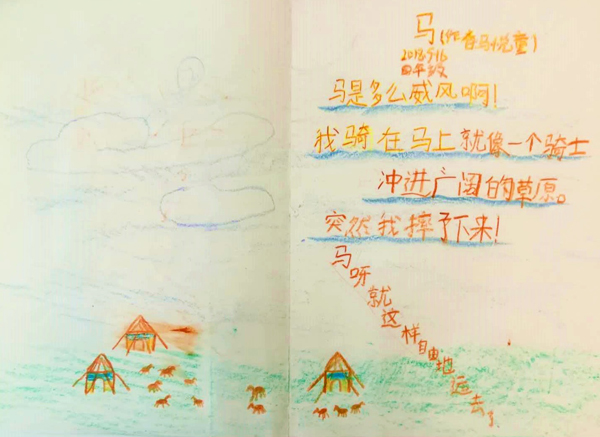 马(作者马悦童)
四年级
马是多么威风啊!
我骑在马上就像一个骑士
冲进广阔的草原。
突然我摔了下来!
马呀就这样自由地远去了